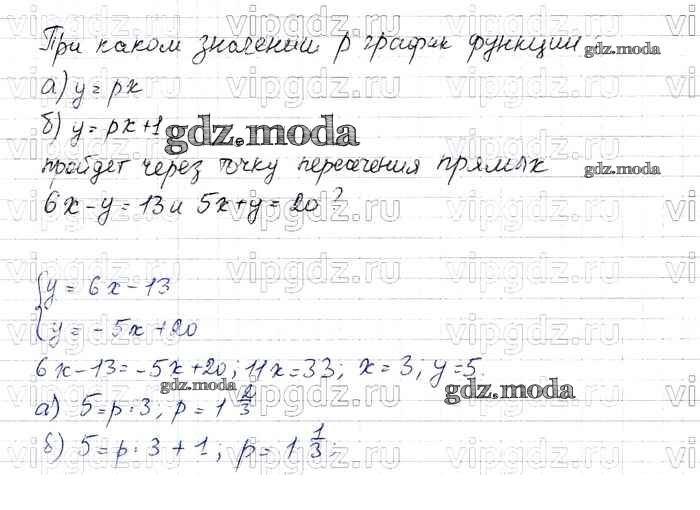 При каком значении p график функции gdz.moda
а) y = px
б) y = px+1 gdz.moda
пройдет через точку пересечения прямых gdz.moda
6x - y = 13 и 5x + y = 20?
{ y = 6x - 13
y = - 5x + 20
6x - 13 = - 5x + 20; 11x = 33; x = 3; y = 5.
gdz.moda
gdz.moda
а) 5 = p · 3, p = 1 2/3
б) 5 = p · 3 + 1; p = 1 1/3;
vipgdz.ru